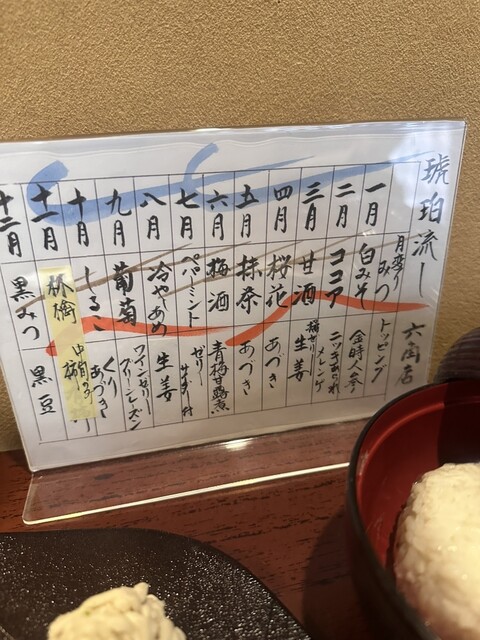 琥珀流し 六角店
月変りみつ トッピング
一月 白みそ 金時人参
二月 ココア ニッキあられ メレンゲ
三月 甘酒 生姜
四月 桜花 あづき
五月 抹茶 あづき
六月 梅酒 青梅甘露煮
七月 ペパーミント ゼリー
八月 冷やあめ 生姜
九月 葡萄 ワインゼリー グリーンレーズン
十月 くり あづき
十一月
十二月 黒みつ 黒豆